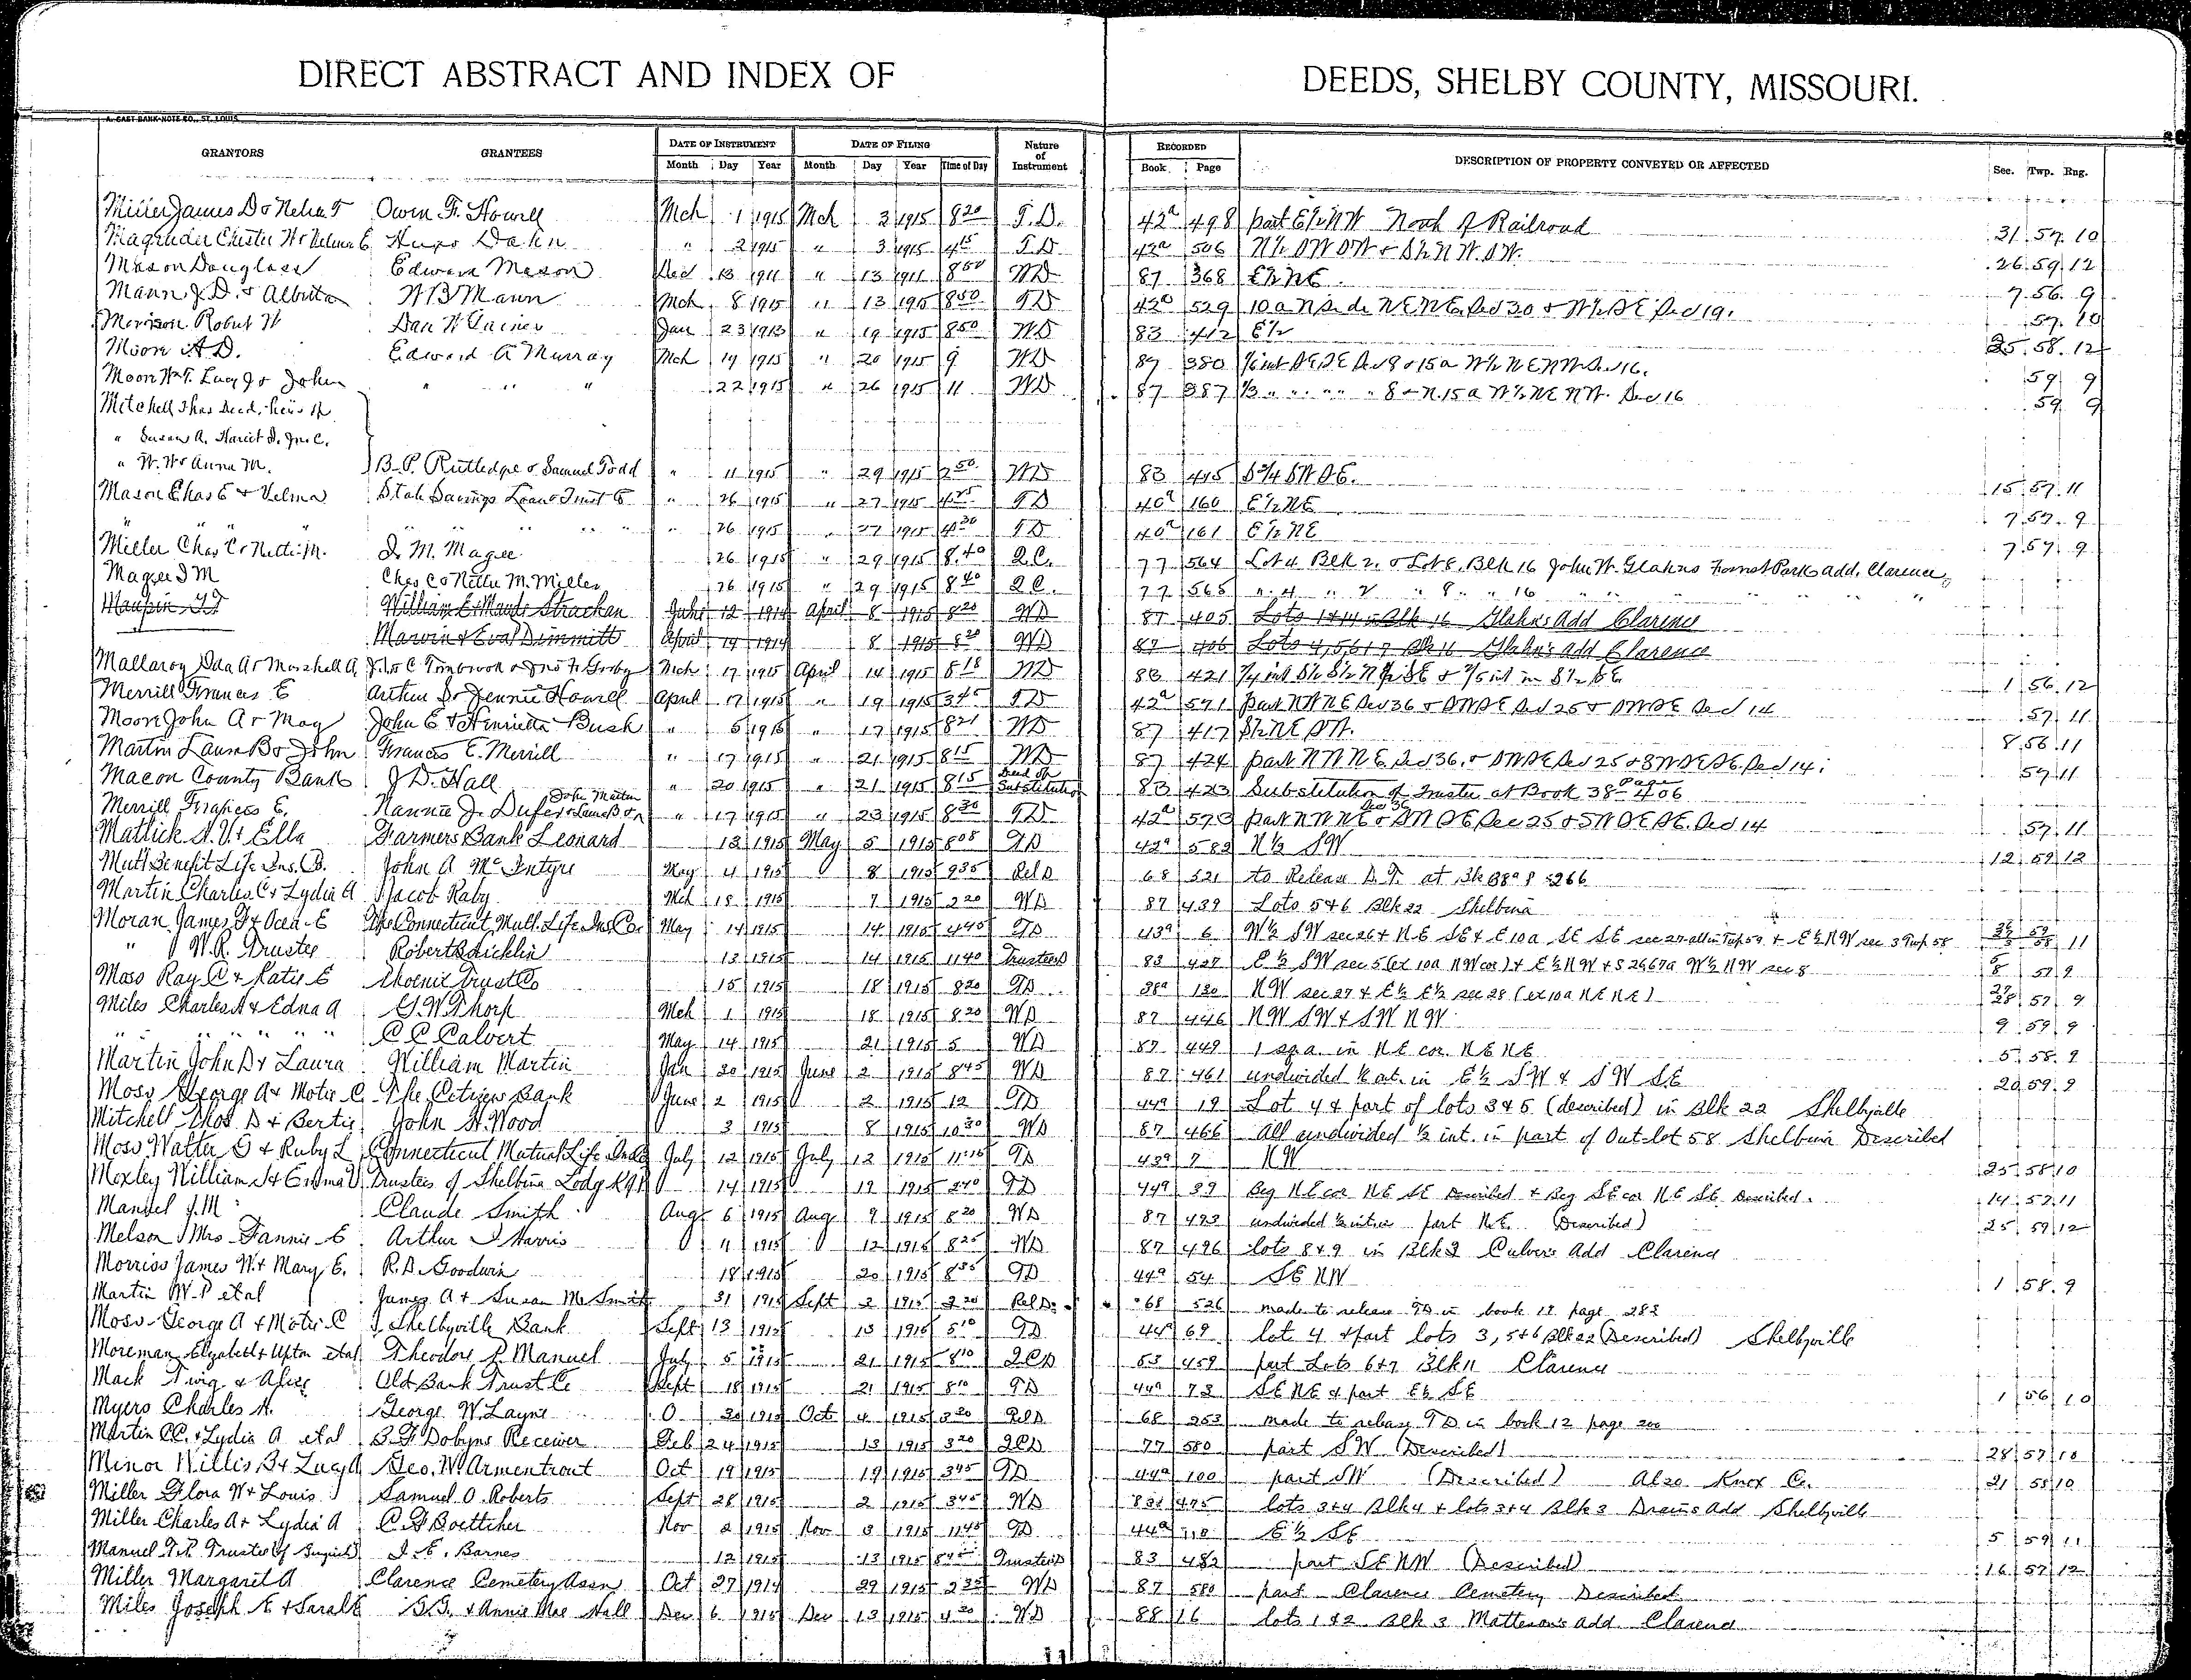 DIRECT ABSTRACT AND INDEX OF DEEDS, SHELBY COUNTY, MISSOURI.
GRANTORS GRANTEES DATE OF INSTRUMENT DATE OF FILING Nature of Instrument RECORDED DESCRIPTION OF PROPERTY CONVEYED OR AFFECTED Sec. Twp. Rng.
Month Day Year Month Day Year Time of Day Book Page
Miller James D & Owen F. Howell Mch 1 1915 Mch 3 1915 8 20 T.D. 42a 498 part E½ NW North of Railroad 31 57 10
Magruder Chester W & Velma E Hugo Dahn " 2 1915 " 3 1915 4 15 T.D 42a 506 N½ SW SW & S½ NW SW. 26 59 12
Mason Douglass Edward Mason Dec 13 1911 " 13 1911 8 50 WD 87 368 E½ NE 7 56 9
Mann J.D. & Alberta W B Mann Mch 8 1915 " 13 1915 8 50 TD 42a 529 10 a N side NE NE Sec 30 & W½ SE Sec 19. 57 10
Morrison Robert W Dan W Jan 23 1913 " 19 1915 8 50 WD 83 412 E½ 25 58 12
Moore A D. Edward A Murray Mch 19 1915 " 20 1915 9 WD 87 380 SE SE Sec 8 & 15 a W½ NE NW Sec 16. 59 9
Moore Wm T. Lucy J & John " " " 22 1915 " 26 1915 11 WD 87 387 1/3 " " " " 8 & N. 15 a W½ NE NW. Sec 16 59 9
Mitchell Thos Decd, heirs of
" Susan A. Harriet I. Jno C.
" W. W & Anna M. B.P. Rutledge & Samuel Todd " 11 1915 " 29 1915 2 50 WD 83 445 S ¾ SW SE. 15 57 11
Mason Chas E & Velma State Savings Loan & Trust Co " 26 1915 " 27 1915 4 25 TD 40a 160 E½ NE 7 57 9
" " " " " " " " 26 1915 " 27 1915 4 30 TD 40a 161 E½ NE 7 57 9
Miller Chas C & Nettie M. I. M. Magee 26 1915 " 29 1915 8.40 Q.C. 77 564 Lot 4 Blk 2. & Lot 8. Blk 16 John W. Glahns Forrest Park add. Clarence
Magee I M Chas C & Nettie M. Miller 26 1915 " 29 1915 8 40 Q.C. 77 565 " 4 " 2 " 8 " 16 " " " "
Maupin William E & Maude Strachan June 12 1914 April 8 1915 8 20 WD 87 405 Lots Blk 16 Glahns Add Clarence
Marvin & Eva Dimmitt April 14 1914 8 1915 8 20 WD 87 406 Lots 4,5,6 & 7 Blk 16 Glahn's Add Clarence
Mallaroy Ida A & Marshall A Mch 17 1915 April 14 1915 8 15 WD 83 421 1 56 12
Merrill Frances E Arthur D & Jennie Howell April 17 1915 " 19 1915 3 45 TD 42a 571 part NW NE Sec 36 & SW SE Sec 25 & SW SE Sec 14 57 11
Moore John A & May John E & Henrietta Bush " 5 1915 " 17 1915 8 21 WD 87 417 S½ NE SW. 8 56 11
Martin Laura B & John Frances E. Merrill " 17 1915 " 21 1915 8 15 WD 87 424 part NW NE Sec 36. & SW SE Sec 25 & SW SE SE Sec 14. 57 11
Macon County Bank J D. Hall " 20 1915 " 21 1915 8 15 Deed of Substitution 83 423 Substitution of Trustee at Book 38a page 406
Merrill Frances E. Nannie J. " 17 1915 " 23 1915 8 30 TD 42a 573 part NW NE Sec 36 & SW SE Sec 25 & SW SE SE. Sec 14 57 11
Matlick A.V. & Ella Farmers Bank Leonard 13 1915 May 5 1915 8 08 TD 42a 583 N½ SW 12 59 12
Mutl Benefit Life Ins. Co. John A McIntyre May 4 1915 8 1915 9 35 Rel D 68 521 to Release D.T. at Bk 38a P 266
Martin Charles C & Lydia A Jacob Raby Mch 18 1915 7 1915 2 20 WD 87 439 Lots 5 & 6 Blk 22 Shelbina
Moran James F & Ocea E The Connecticut Mutl. Life Ins Co. May 14 1915 14 1915 4 45 TD 43a 6 W½ SW sec 26 & NE SE & E 10 a SE SE sec 27 all in Twp 59 & E½ NW sec 3 Twp 58 11
" W.R. Trustee Robert Bricklin 13 1915 14 1915 11 40 Trustees D 83 427 E½ SW sec 5 (ex 10a NW cor) & E½ NW & S 26.67a W½ NW sec 8 57 9
Moss Ray C & Katie E Phoenix Trust Co 15 1915 18 1915 8 20 TD 38a 130 NW sec 27 & E½ E½ sec 28 (ex 10 a NE NE) 27 28 57 9
Miles Charles A & Edna A G.W. Thorp Mch 1 1915 18 1915 8 20 WD 87 446 NW SW & SW NW 9 59 9
" " " " " " C C Calvert May 14 1915 21 1915 5 WD 87 449 1 sq a. in NE cor. NE NE 5 58 9
Martin John D & Laura William Martin Jan 30 1915 June 2 1915 8 45 WD 87 461 undivided int. in E½ SW & SW SE 20 59 9
Moss George A & Motie C The Citizens Bank June 2 1915 2 1915 12 TD 44a 19 Lot 4 & part of lots 3 & 5 (described) in Blk 22 Shelbyville
Mitchell Thos. D & Bertie John H. Wood 3 1915 8 1915 10 30 WD 87 466 All undivided ½ int. in part of Out-lot 58 Shelbina Described
Moss Walter G & Ruby L Connecticut Mutual Life Ins Co July 12 1915 July 12 1915 11 15 TD 43a 7 NW 25 58 10
Moxley William H & Emma V Trustees of Shelbina Lodg K of P 14 1915 19 1915 2 40 TD 44a 39 Beg NE cor NE SE Described & Beg SE cor NE SE Described. 14 57 11
Manuel J.M Claude Smith Aug 6 1915 Aug 9 1915 8 20 WD 87 493 undivided ½ int in part NE. (Described) 25 59 12
Melson Mrs Fannie E Arthur J Harris 11 1915 12 1915 8 25 WD 87 496 lots 8 & 9 in Blk 2 Culvers Add Clarence
Morriss James W. & Mary E. R.D. Goodwin 18 1915 20 1915 8 35 TD 44a 54 SE NW 1 58 9
Martin W.P et al James A & Susan M Smith 31 1915 Sept 2 1915 2 20 Rel D. 68 526 made to release TD in book 18 page 283
Moss George A & Motie C Shelbyville Bank Sept 13 1915 13 1915 5 10 TD 44a 69 lot 4 & part lots 3, 5 & 6 Blk 22 (Described) Shelbyville
Moreman Elizabeth & Upton et al Theodore P. Manuel July 5 1915 21 1915 8 10 QCD 53 459 part Lots 6 & 7 Blk 11 Clarence
Mack Twig & Alice Old Bank Trust Co Sept 18 1915 21 1915 8 10 TD 44a 73 SE NE & part E½ SE 1 56 10
Myers Charles H. George W. Layne 30 1915 Oct 4 1915 3 20 Rel D 68 253 made to release TD in book 12 page 200
Martin CC. & Lydia A et al B.F Dobyns Receiver Feb 24 1915 13 1915 3 20 QCD 77 580 part SW (Described) 28 57 10
Minor Willis B & Lucy A Geo. W. Armentrout Oct 19 1915 19 1915 3 45 TD 44a 100 part SW (Described) Also Knox Co. 21 58 10
Miller Flora W & Louis Samuel O. Roberts Sept 28 1915 2 1915 3 45 WD 83 475 lots 3 & 4 Blk 4 & lots 3 & 4 Blk 3 Drains Add Shelbyville
Miller Charles A & Lydia A C F Boettcher Nov 2 1915 Nov 3 1915 11 45 TD 44a 118 E½ SE 5 59 11
Manuel T.P. Trustee of I. E. Barnes 12 1915 13 1915 8 45 Trustees D 83 482 part SE NW (Described) 16 57 12
Miller Margaret A Clarence Cemetery Assn Oct 27 1914 29 1915 2 35 WD 87 580 part Clarence Cemetery Described
Miles Joseph E & Sarah E G.G. & Annie Mae Hall Dec 6 1915 Dec 13 1915 4 20 WD 88 16 lots 1 & 2 Blk 3 Matteson's add. Clarence